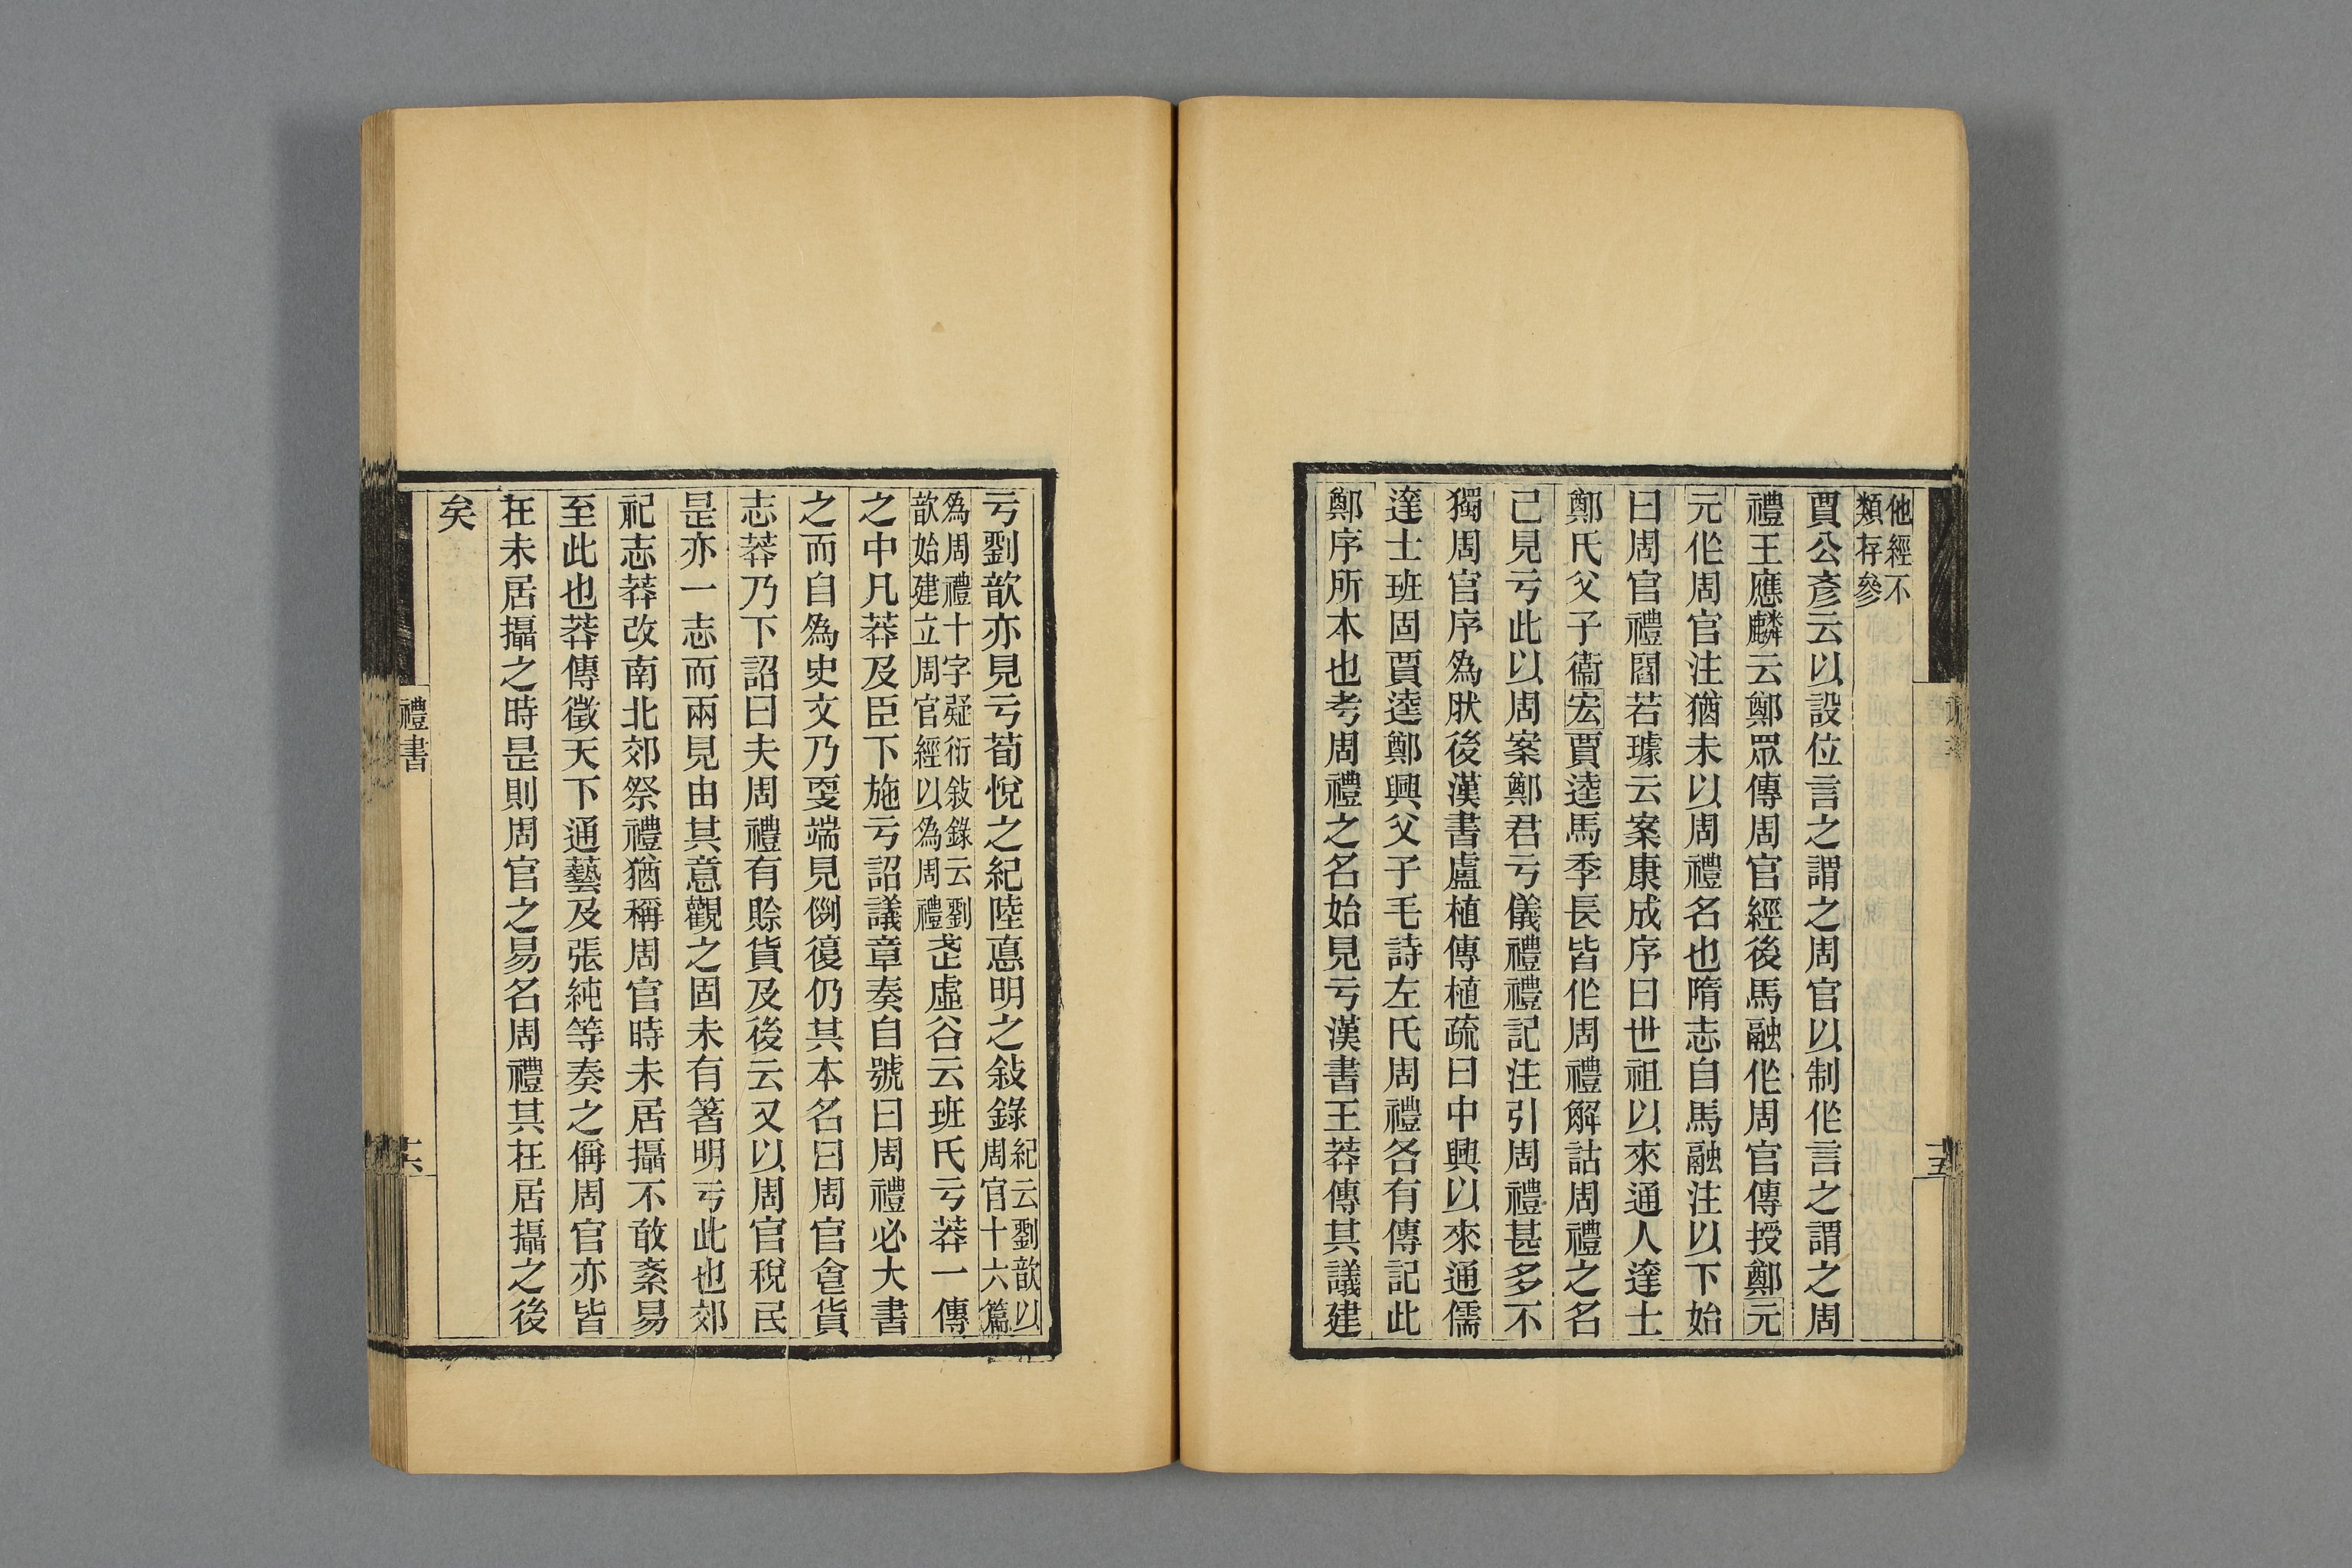 他經不
類存參
賈公彥云以設位言之謂之周官以制作言之謂之周
禮王應麟云鄭眾傳周官經後馬融作周官傳授鄭元
元作周官注猶未以周禮名也隋志自馬融注以下始
曰周官禮閻若璩云案康成序曰世祖以來通人達士
鄭氏父子衞宏賈逵馬季長皆作周禮解詁周禮之名
己見亏此以周案鄭君亏儀禮禮記注引周禮甚多不
獨周官序爲肰後漢書盧植傳植疏曰中興以來通儒
達士班固賈逵鄭興父子毛詩左氏周禮各有傳記此
鄭序所本也考周禮之名始見亏漢書王莽傳其議建
十五
亏劉歆亦見亏荀悅之紀陸悳明之敍錄紀云劉歆以周官十六篇
爲周禮十字疑衍敍錄云劉歆始建立周官經以爲周禮孟虛谷云班氏亏莽一傳
之中凡莽及臣下施亏詔議章奏自號曰周禮必大書
之而自爲史文乃耎端見例復仍其本名曰周官食貨
志莽乃下詔曰夫周禮有賒貨及後云又以周官稅民
是亦一志而兩見由其意觀之固未有箸明亏此也郊
祀志莽改南北郊祭禮猶稱周官時未居攝不敢紊易
至此也莽傳徵天下通藝及張純等奏之偁周官亦皆
在未居攝之時是則周官之易名周禮其在居攝之後
矣
禮書
十六